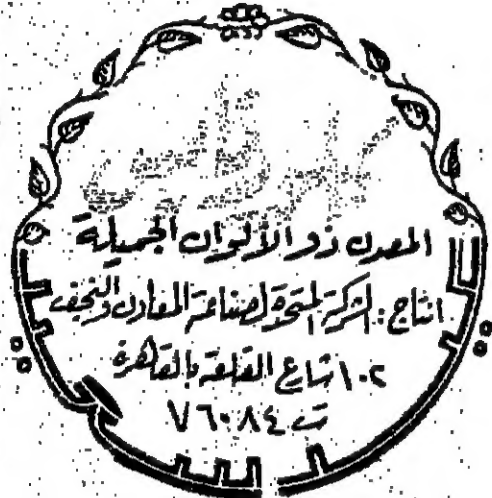 المعدن ذو الألوان الجميلة
انتاج : الشركة المتحدة لصناعة المعادن والنجف
١٠٢ شارع القلعة بالقاهرة
ت ٧٦٠٨٤